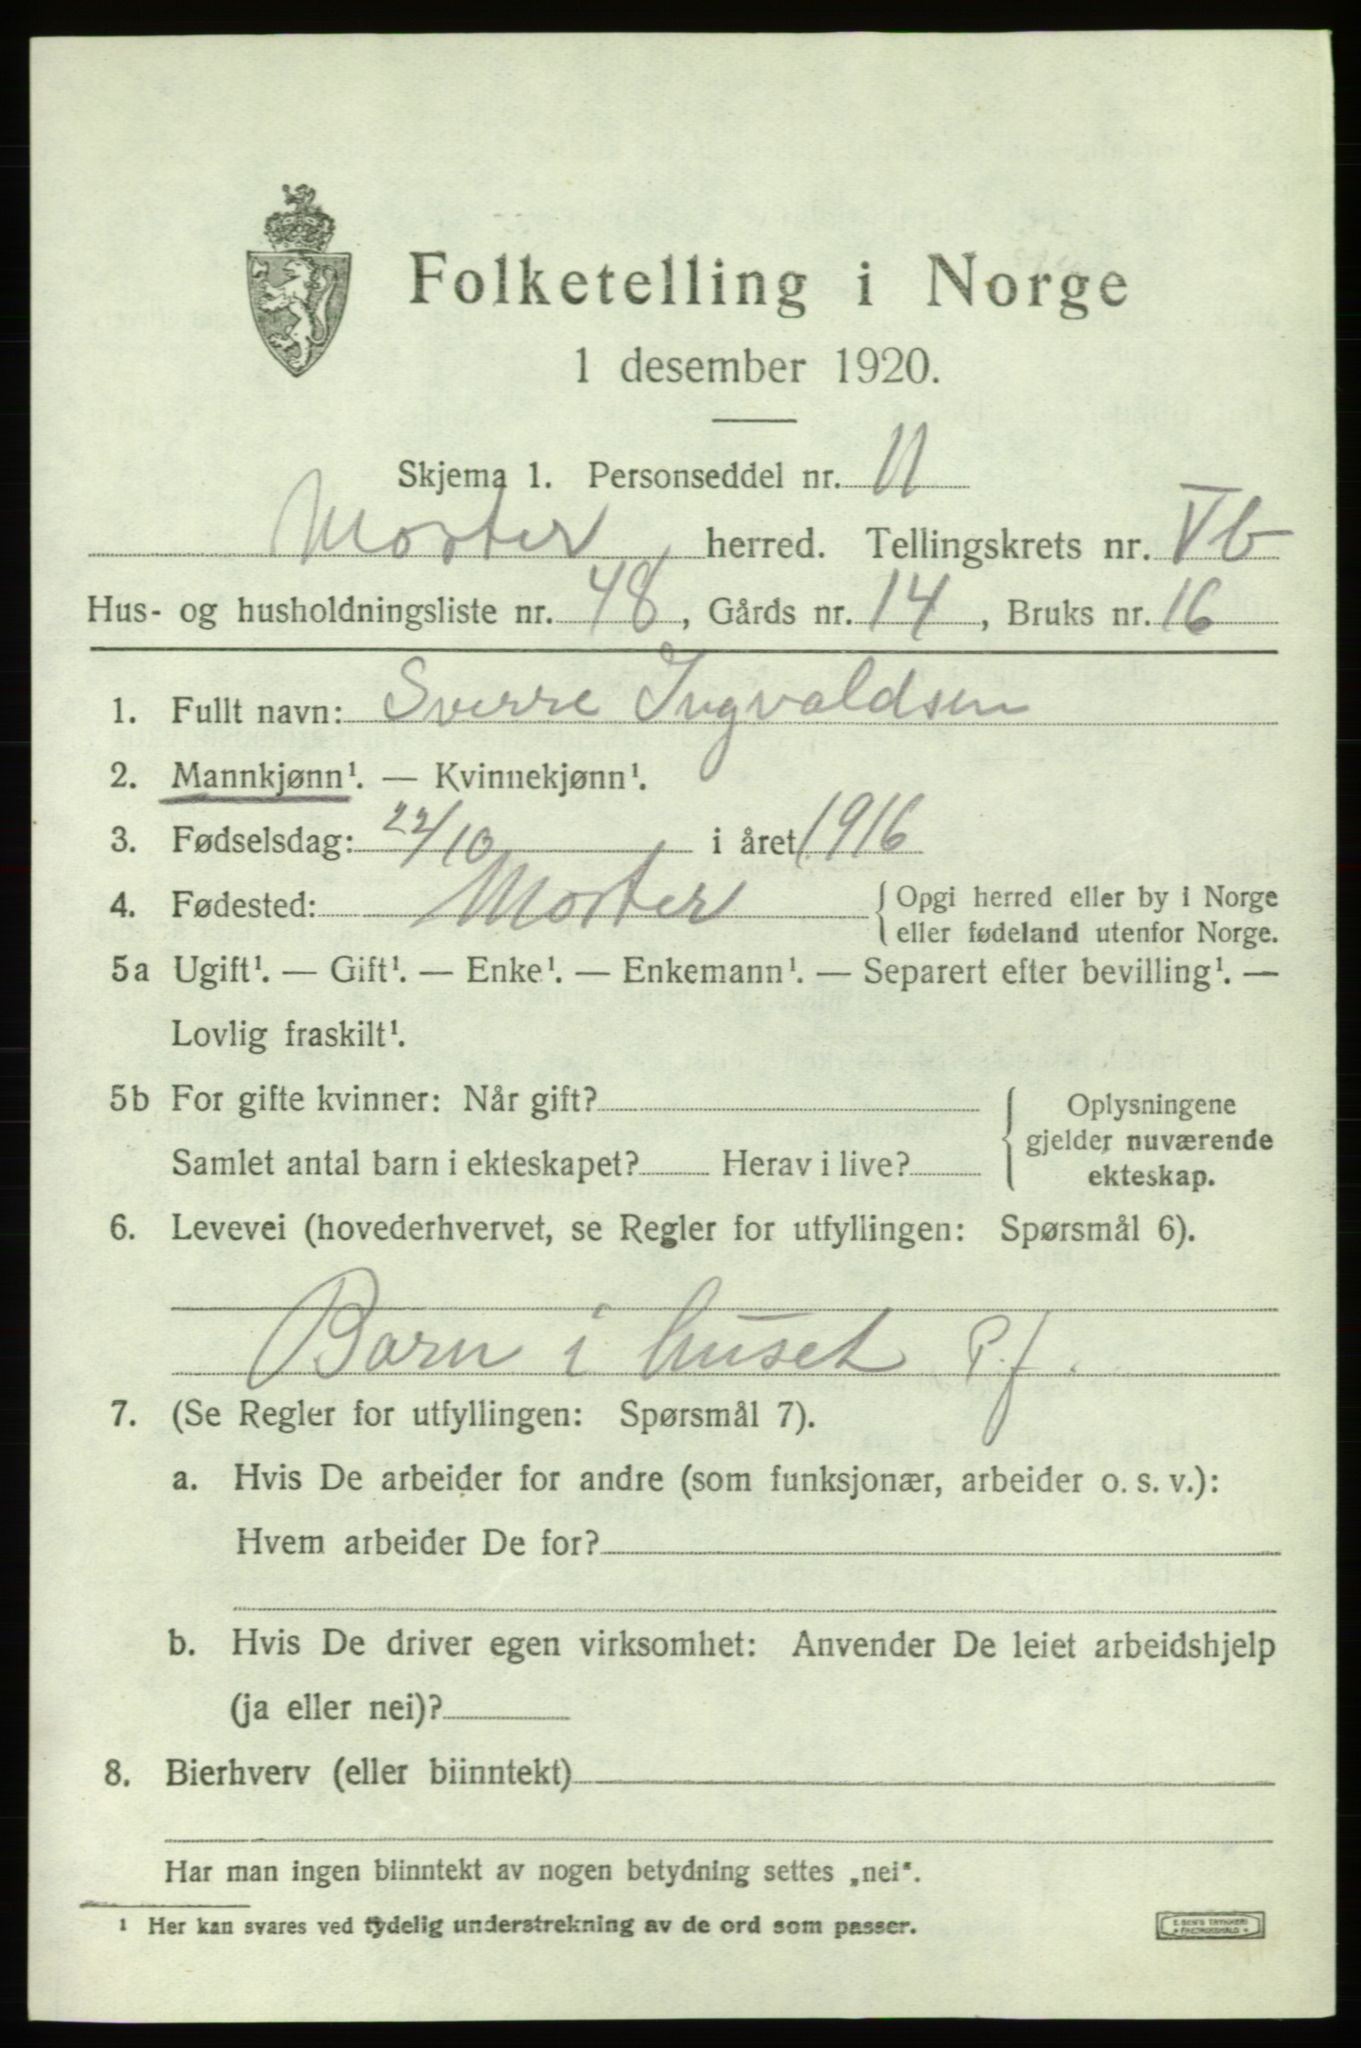 Folketelling i Norge
1 desember 1920.
Skjema 1. Personseddel nr. 11
Moster herred. Tellingskrets nr. Vb
Hus- og husholdningsliste nr. 48, Gårds nr. 14, Bruks nr. 16
1. Fullt navn: Sverre Ingvaldsen
2. Mannkjønn¹. — Kvinnekjønn¹.
3. Fødselsdag: 22/10 i året 1916
4. Fødested: Moster {Opgi herred eller by i Norge
eller fødeland utenfor Norge.
5a Ugift¹. — Gift¹. — Enke¹. — Enkemann¹. — Separert efter bevilling¹. —
Lovlig fraskilt¹.
5b For gifte kvinner: Når gift? {Oplysningene
gjelder nuværende
Samlet antal barn i ekteskapet? Herav i live?
ekteskap.
6. Levevei (hovederhvervet, se Regler for utfyllingen: Spørsmål 6).
Barn i huset P.f.
7. (Se Regler for utfyllingen: Spørsmål 7).
a. Hvis De arbeider for andre (som funksjonær, arbeider o. s. v.):
Hvem arbeider De for?
b. Hvis De driver egen virksomhet: Anvender De leiet arbeidshjelp
(ja eller nei)?
8. Bierhverv (eller biinntekt)
Har man ingen biinntekt av nogen betydning settes „nei".
¹ Her kan svares ved tydelig understrekning av de ord som passer.